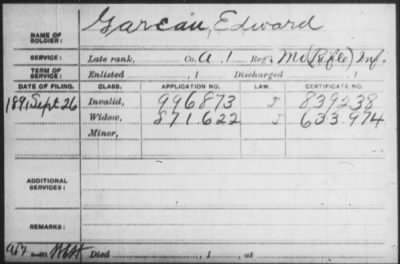 Gareau, Edward
NAME OF SOLDIER:
SERVICE: Late rank, Co. A. 1 Reg't Mo (Rifle) Inf.
TERM OF SERVICE: Enlisted , 1 Discharged , 1
DATE OF FILING. CLASS. APPLICATION NO. LAW. CERTIFICATE NO.
1891 Sept. 26 Invalid, 996873 J 839238
Widow, 871.622 J 633.974
Minor,
ADDITIONAL SERVICES:
REMARKS:
Died , 1 , at